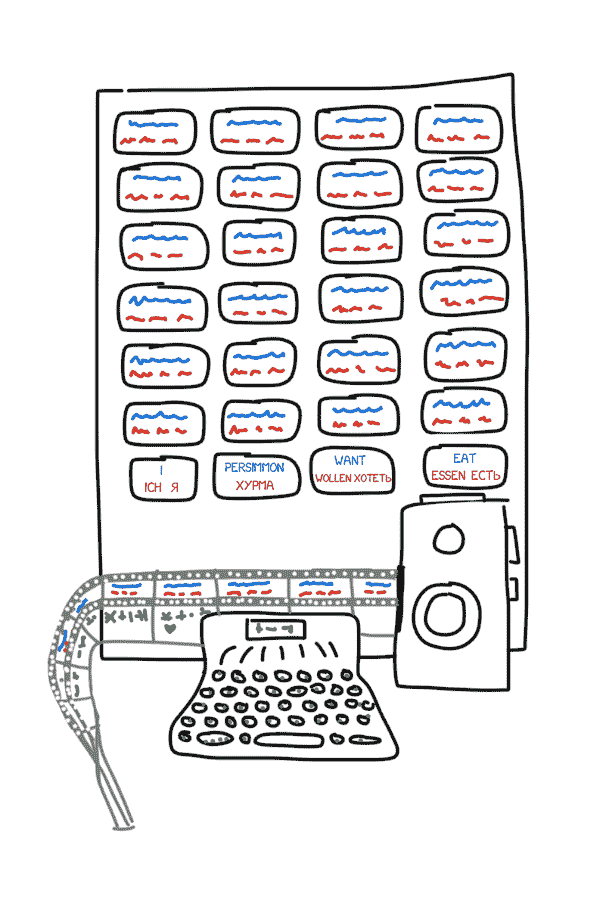 I
ICH Я
PERSIMMON
ХУРМА
WANT
WOLLEN ХОТЕТЬ
EAT
ESSEN ЕСТЬ